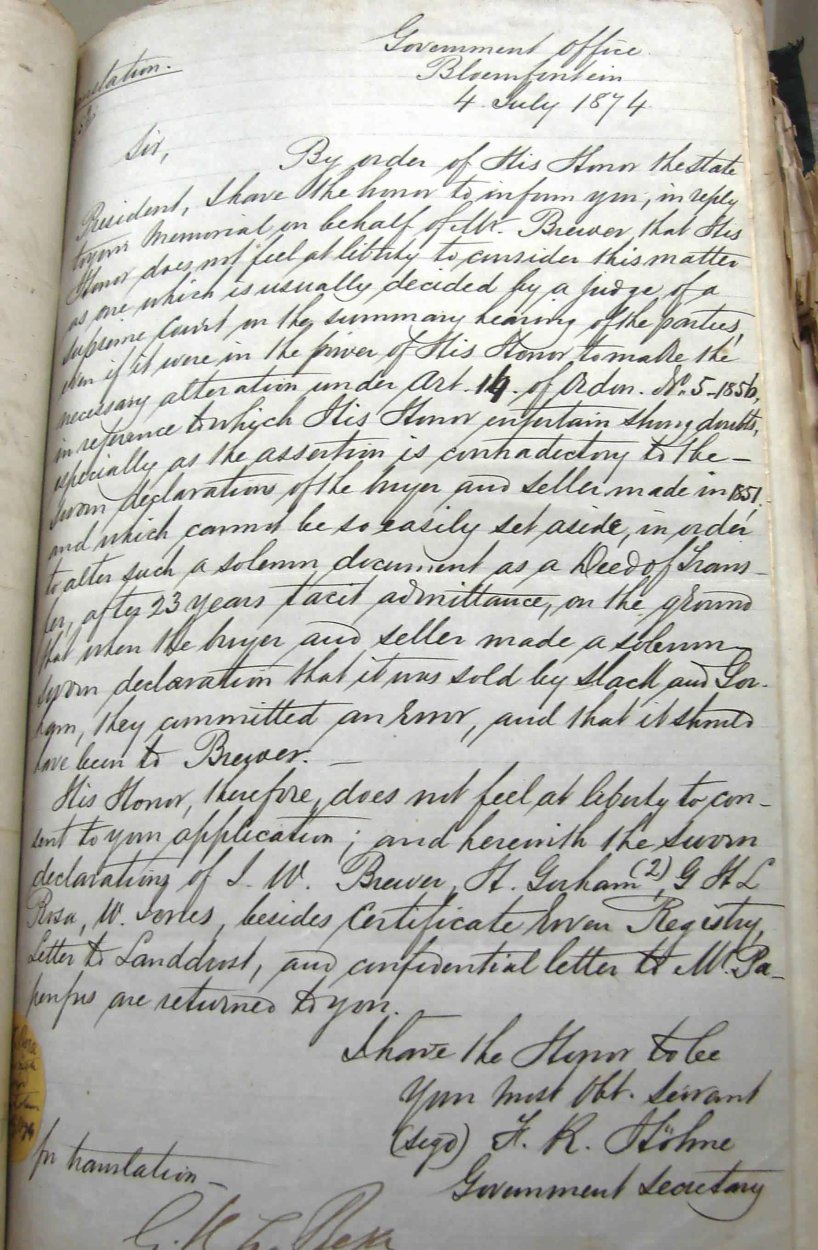 Government Office
Bloemfontein
4 July 1874
Translation.
Sir,
By order of His Honor the State
President, I have the honor to inform you, in reply
to your Memorial on behalf of Mr. Brewer, that His
Honor does not feel at liberty to consider this matter
as one which is usually decided by a judge of a
supreme Court on the summary hearing of the parties,
even if it were in the power of His Honor to make the
necessary alteration under Art. 14. of Ordon. No. 5-1856,
in reference to which His Honor entertain strong doubts,
especially as the assertion is contradictory to the –
sworn declarations of the buyer and seller made in 1851.
and which cannot be so easily set aside, in order
to alter such a solemn document as a Deed of Trans-
fer, after 23 years tacit admittance, on the ground
that when the buyer and seller made a solemn
sworn declaration that it was sold by Slack and Gor-
ham, they committed an Error, and that it should
have been to Brewer. –
His Honor, therefore, does not feel at liberty to con-
sent to your application; and herewith the sworn
declarations of I. W. Brewer, H. Gorham (2), G H L
Rosa, W. Jones, besides Certificate Erven Registry,
Letter to Landdrost, and confidential letter to Mr. Pa-
penfus are returned to you.
I have the Honor to be
Your most Obt. servant
(sigd) F. K. Höhne
Government Secretary
for translation –
G. H. L. Rosa